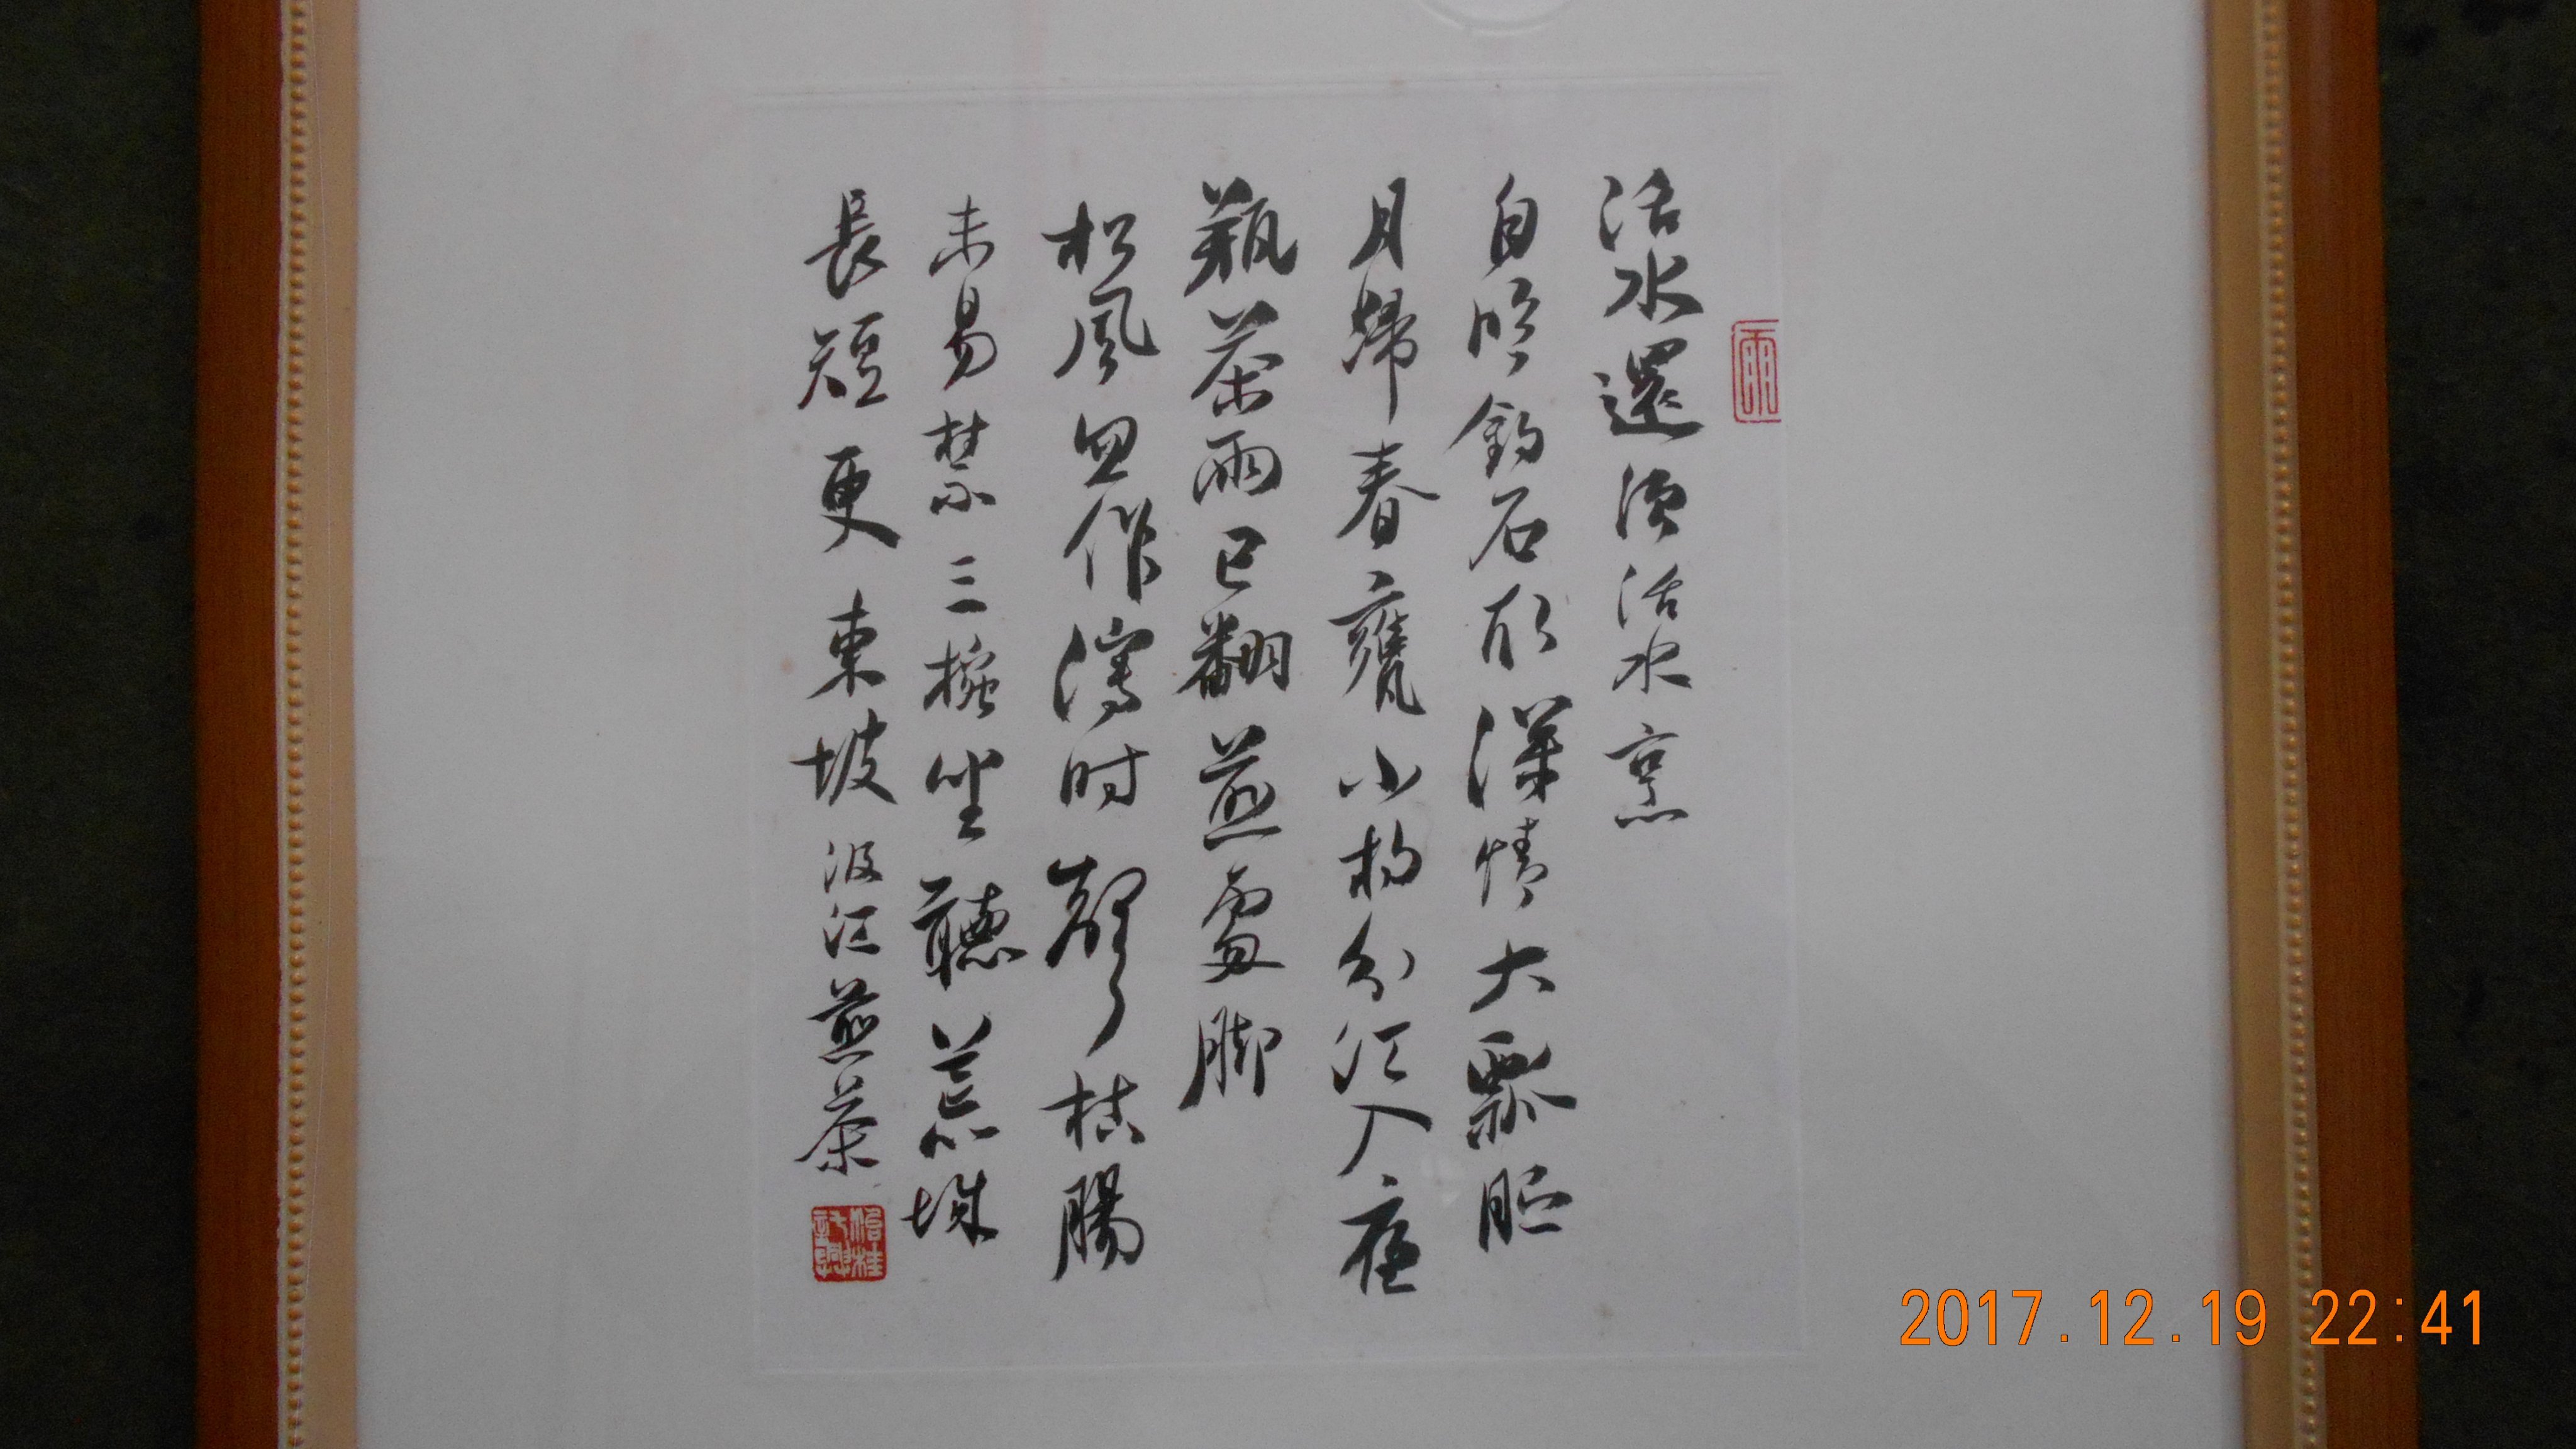 活水還須活水烹
自臨釣石取深情大瓢貯
月歸春甕小杓分江入夜
瓶茶雨已翻煎處腳
松風忽作瀉時聲枯腸
未易禁三椀坐聽荒城
長短更 東坡汲江煎茶
雨
2017.12.19 22:41